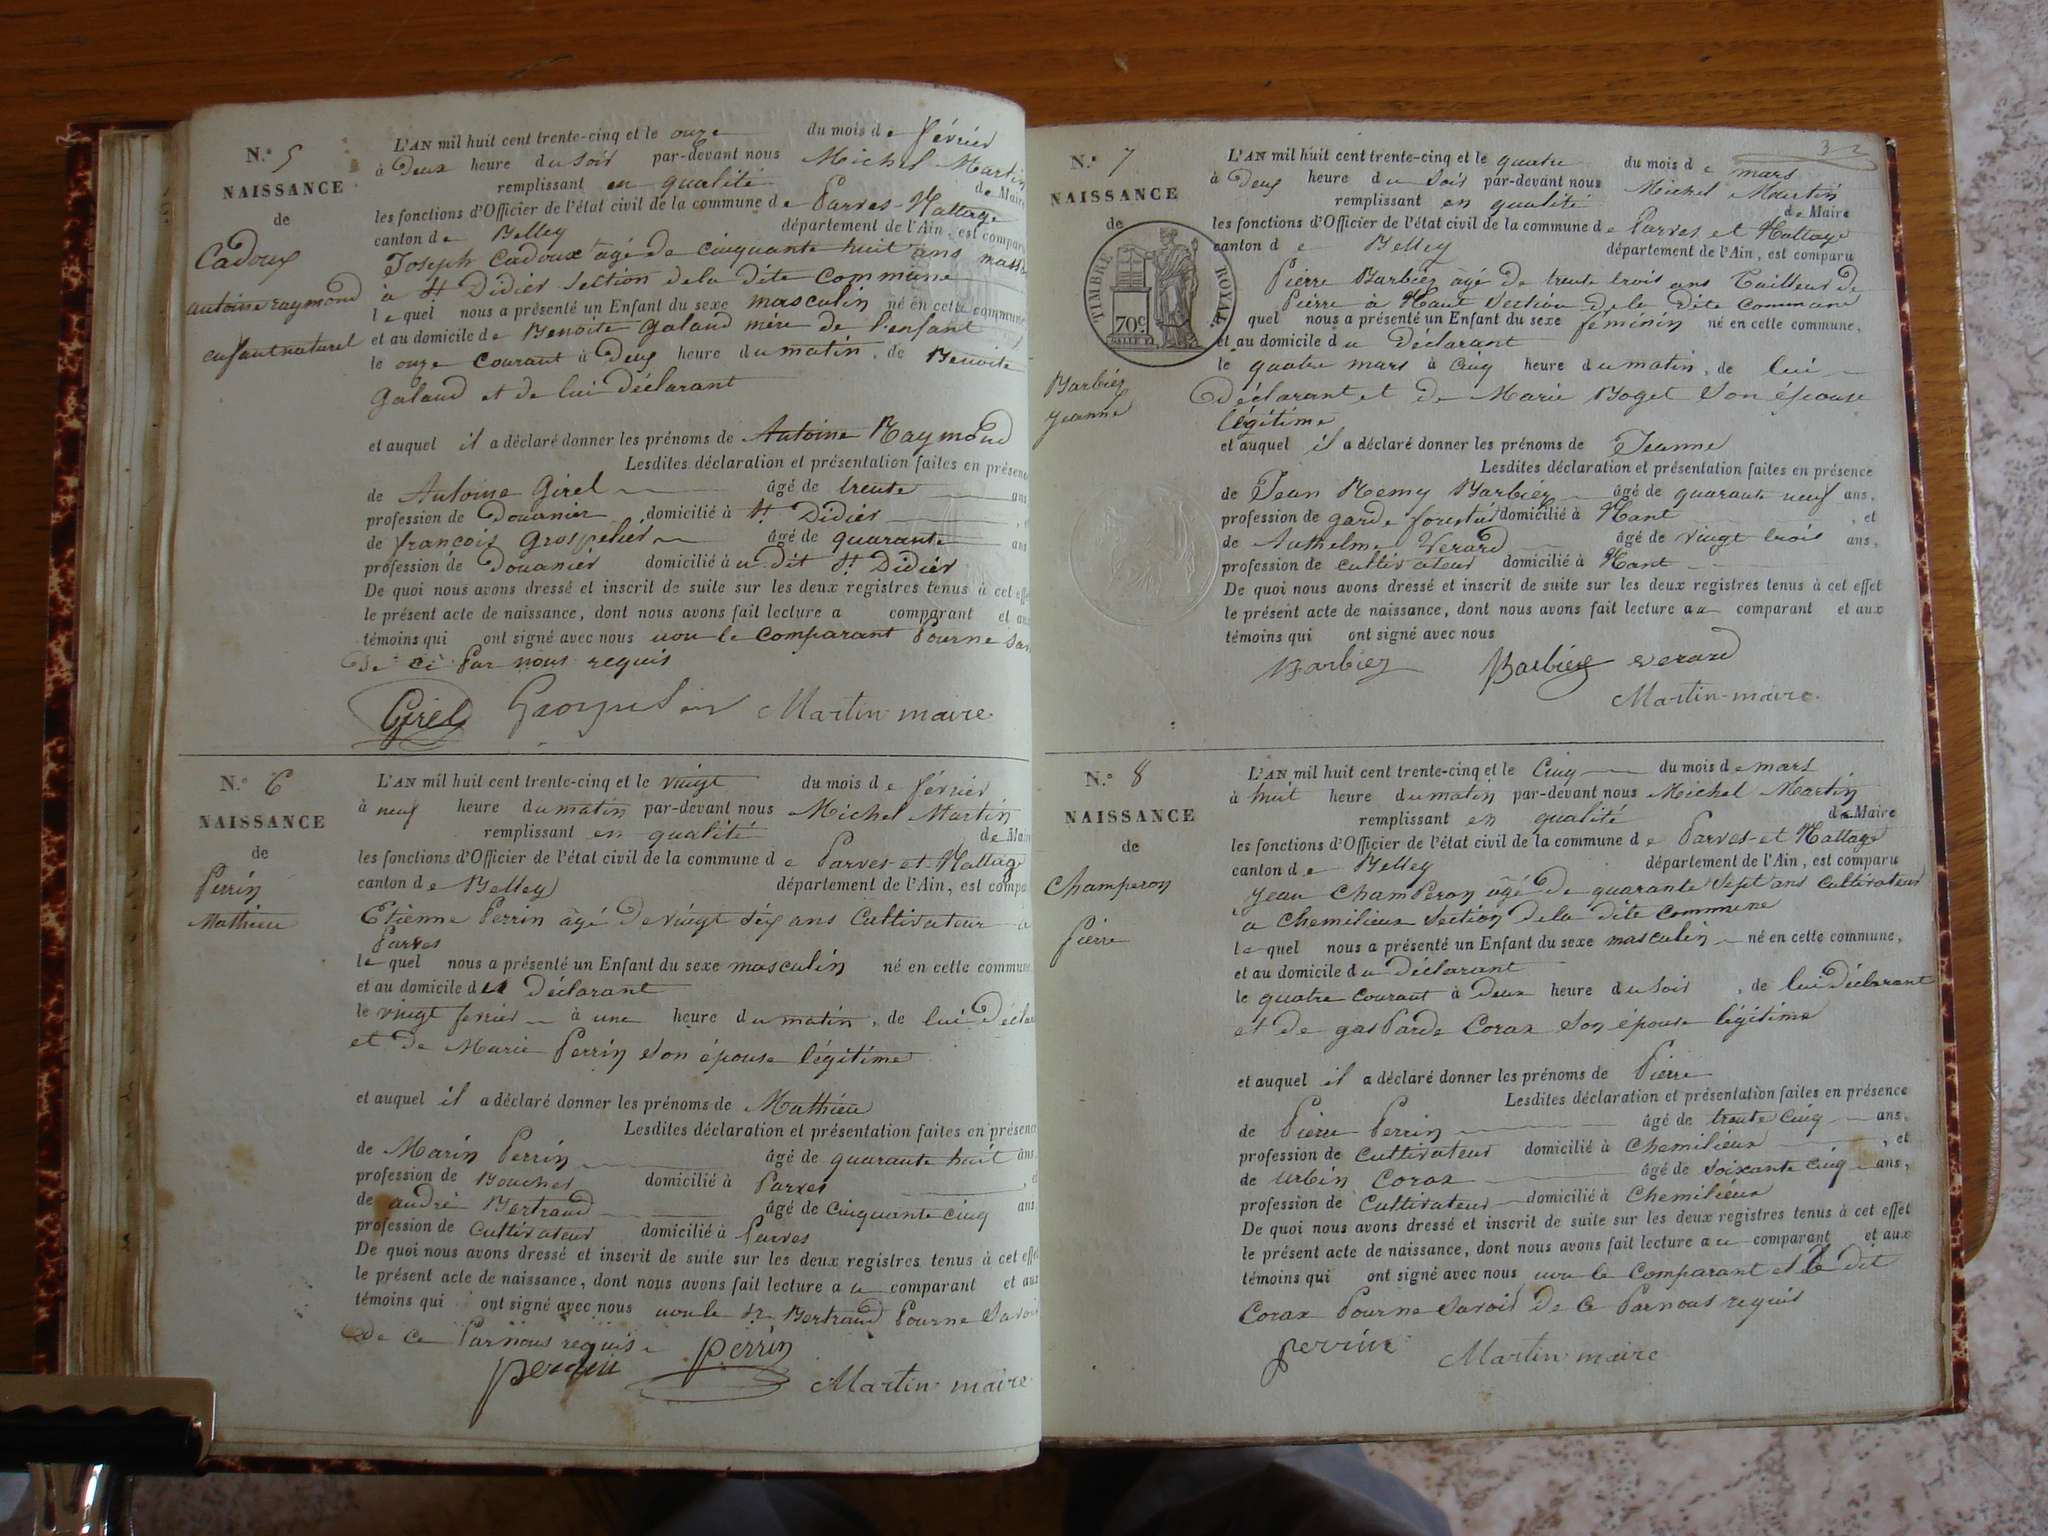 N.° 5
NAISSANCE
de
Cadoux
antoine raymond
enfant naturel
L'AN mil huit cent trente-cinq et le onze du mois de février
à Deux heure du soir par-devant nous Michel Martin
remplissant en qualité de Maire
les fonctions d'Officier de l'état civil de la commune de Parves-Nattage
canton de Belley département de l'Ain, est comparu
Joseph Cadoux âgé de cinquante huit ans
à St Didier Section de la dite Commune
le quel nous a présenté un Enfant du sexe masculin né en cette commune
et au domicile de Benoite Galaud mère de l'enfant
le onze courant à Deux heure du matin, de Benoite
Galaud et de lui déclarant
et auquel il a déclaré donner les prénoms de Antoine Raymond
Lesdites déclaration et présentation faites en présence
de Antoine Girel âgé de trente ans
profession de Douanier domicilié à St Didier
de françois Grospelier âgé de quarante ans
profession de Douanier domicilié à u dit St Didier
De quoi nous avons dressé et inscrit de suite sur les deux registres tenus à cet effet
le présent acte de naissance, dont nous avons fait lecture a comparant et aux
témoins qui ont signé avec nous non le comparant Pour ne sa
de ce Par nous requis
Girel Martin maire
N.° 6
NAISSANCE
de
Perrin
Mathieu
L'AN mil huit cent trente-cinq et le vingt du mois de février
à neuf heure du matin par-devant nous Michel Martin
remplissant en qualité de Maire
les fonctions d'Officier de l'état civil de la commune de Parves-et-Nattage
canton de Belley département de l'Ain, est compa
Etienne Perrin âgé de vingt six ans Cultivateur à
Parves
le quel nous a présenté un Enfant du sexe masculin né en cette commune
et au domicile du Déclarant
le vingt fevrier à une heure du matin, de lui Décla
et de Marie Perrin son épouse légitime
et auquel il a déclaré donner les prénoms de Mathieu
Lesdites déclaration et présentation faites en présence
de Marin Perrin âgé de quarante huit ans
profession de Boucher domicilié à Parves
de andré Bertrand âgé de Cinquante cinq ans
profession de Cultivateur domicilié à Parves
De quoi nous avons dressé et inscrit de suite sur les deux registres tenus à cet effet
le présent acte de naissance, dont nous avons fait lecture au comparant et aux
témoins qui ont signé avec nous non le Sr Bertrand Pour ne Savoir
de ce Par nous requis
perrin perrin
Martin maire
32
N.° 7
NAISSANCE
de
TIMBRE ROYAL
70c
Barbiez
Jeanne
L'AN mil huit cent trente-cinq et le quatre du mois de mars
à Deux heure du soir par-devant nous Michel Martin
remplissant en qualité de Maire
les fonctions d'Officier de l'état civil de la commune de Parves et Nattage
canton de Belley département de l'Ain, est comparu
Pierre Barbiez âgé de trente trois ans Tailleur de
Pierre à Nant Section de la Dite Commune
quel nous a présenté un Enfant du sexe féminin né en cette commune,
et au domicile du Déclarant
le quatre mars à cinq heure du matin, de lui
Déclarant et de Marie Boget Son épouse
légitime
et auquel il a déclaré donner les prénoms de Jeanne
Lesdites déclaration et présentation faites en présence
de Jean Remy Barbiez âgé de quarante neuf ans,
profession de garde forestier domicilié à Nant, et
de Anthelme Verard âgé de vingt trois ans,
profession de cultivateur domicilié à Nant
De quoi nous avons dressé et inscrit de suite sur les deux registres tenus à cet effet
le présent acte de naissance, dont nous avons fait lecture au comparant et aux
témoins qui ont signé avec nous
Barbiez Barbiez verard
Martin-maire
N.° 8
NAISSANCE
de
Champeron
Pierre
L'AN mil huit cent trente-cinq et le Cinq du mois de mars
à huit heure du matin par-devant nous Michel Martin
remplissant en qualité de Maire
les fonctions d'Officier de l'état civil de la commune de Parves-et Nattage
canton de Belley département de l'Ain, est comparu
Jean ChamPeron âgé de quarante Sept ans Cultivateur
a Chemilieux Section de la dite commune
le quel nous a présenté un Enfant du sexe masculin né en cette commune,
et au domicile du Déclarant
le quatre courant à deux heure du soir, de lui Déclarant
et de gasParde Corax Son épouse légitime
et auquel il a déclaré donner les prénoms de Pierre
Lesdites déclaration et présentation faites en présence
de Pierre Perrin âgé de trente cinq ans,
profession de Cultivateur domicilié à Chemilieux, et
de urbin Corax âgé de soixante cinq ans,
profession de Cultivateur domicilié à Chemilieux
De quoi nous avons dressé et inscrit de suite sur les deux registres tenus à cet effet
le présent acte de naissance, dont nous avons fait lecture au comparant et aux
témoins qui ont signé avec nous non le Comparant et le dit
Corax Pour ne Savoir de ce Par nous requis
perrin Martin maire